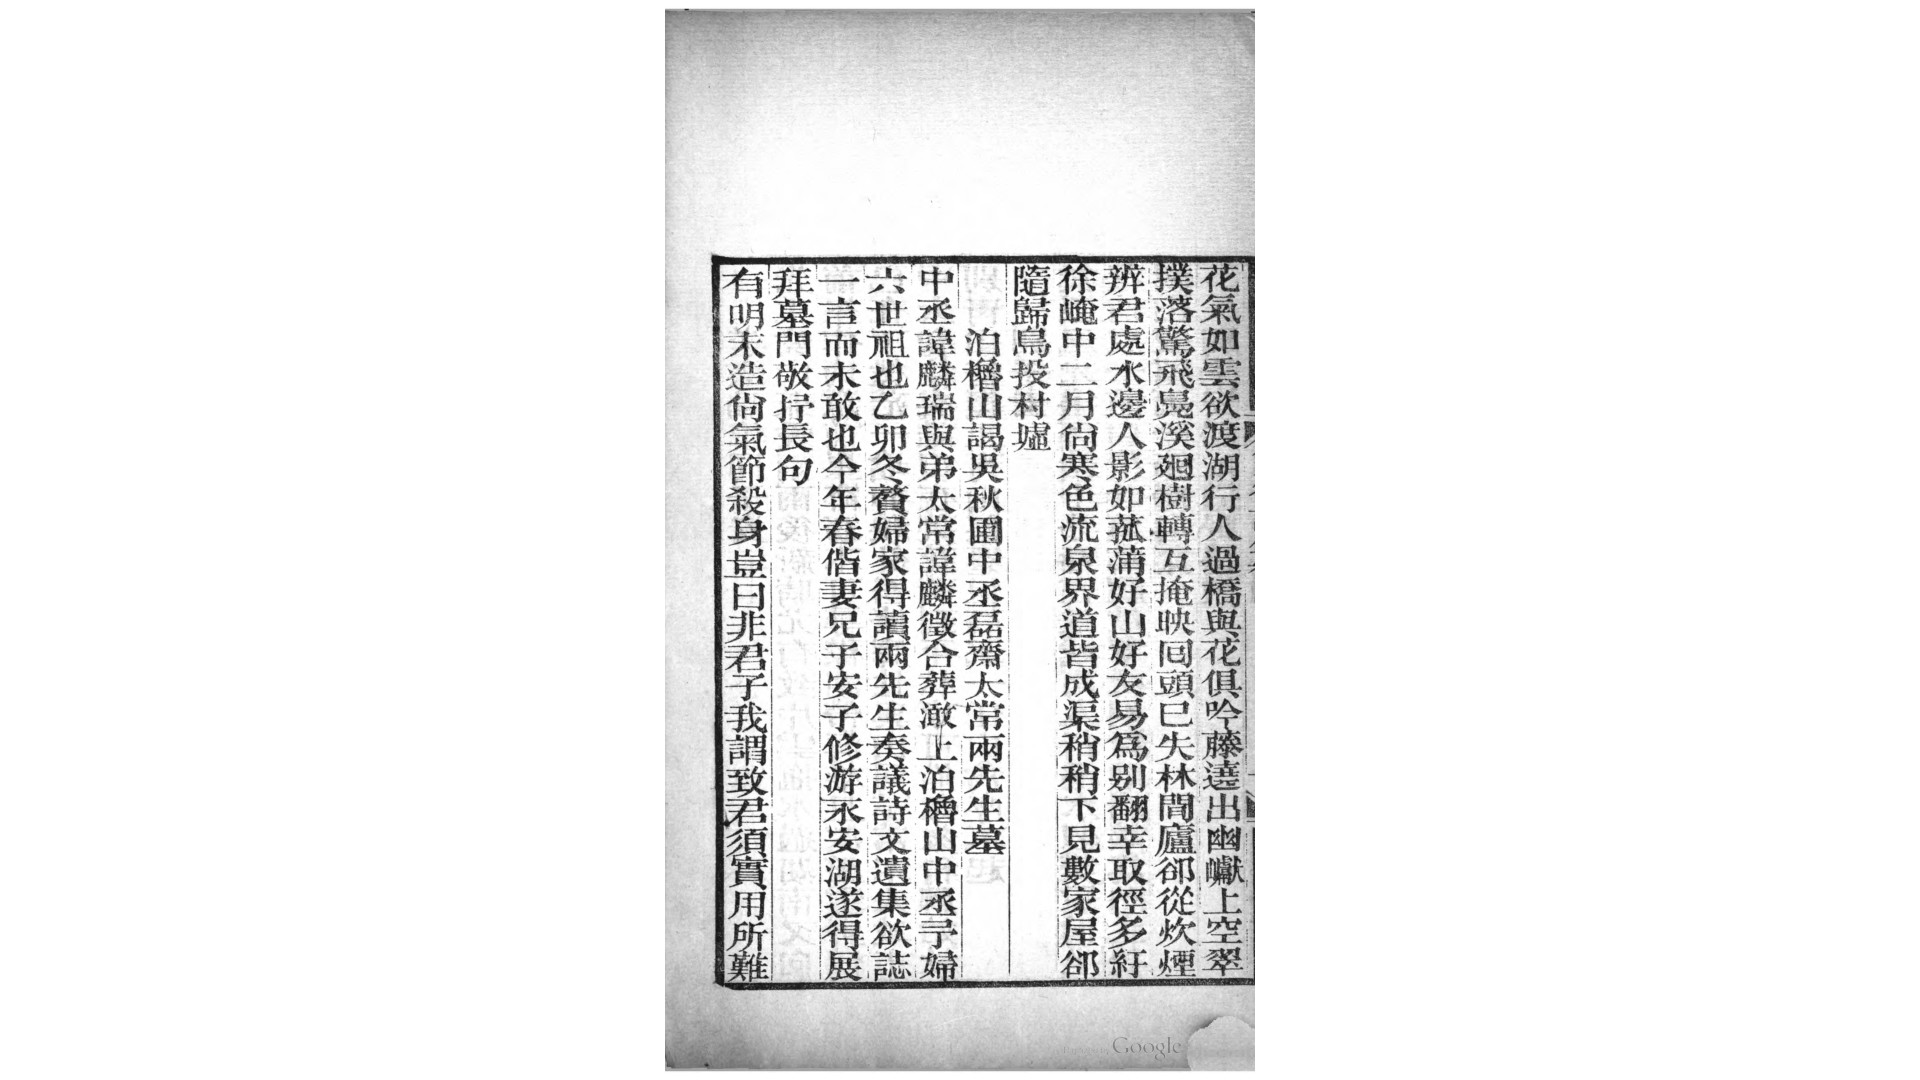 花氣如雲欲渡湖行人過橋與花俱吟藤遶出幽巘上空翠
撲落驚飛鳧溪廻樹轉互掩映回頭已失林間廬郤從炊煙
辨君處水邊人影如菰蒲好山好友易爲别翻幸取徑多紆
徐崦中二月尙寒色流泉界道皆成渠稍稍下見數家屋郤
隨歸鳥投村墟
泊櫓山謁吳秋圃中丞磊齋太常兩先生墓
中丞諱麟瑞與弟太常諱麟徵合葬澉上泊櫓山中丞予婦
六世祖也乙卯冬贅婦家得讀兩先生奏議詩文遺集欲誌
一言而未敢也今年春偕妻兄子安子修游永安湖遂得展
拜墓門敬抒長句
有明末造尙氣節殺身豈曰非君子我謂致君須實用所難
Google